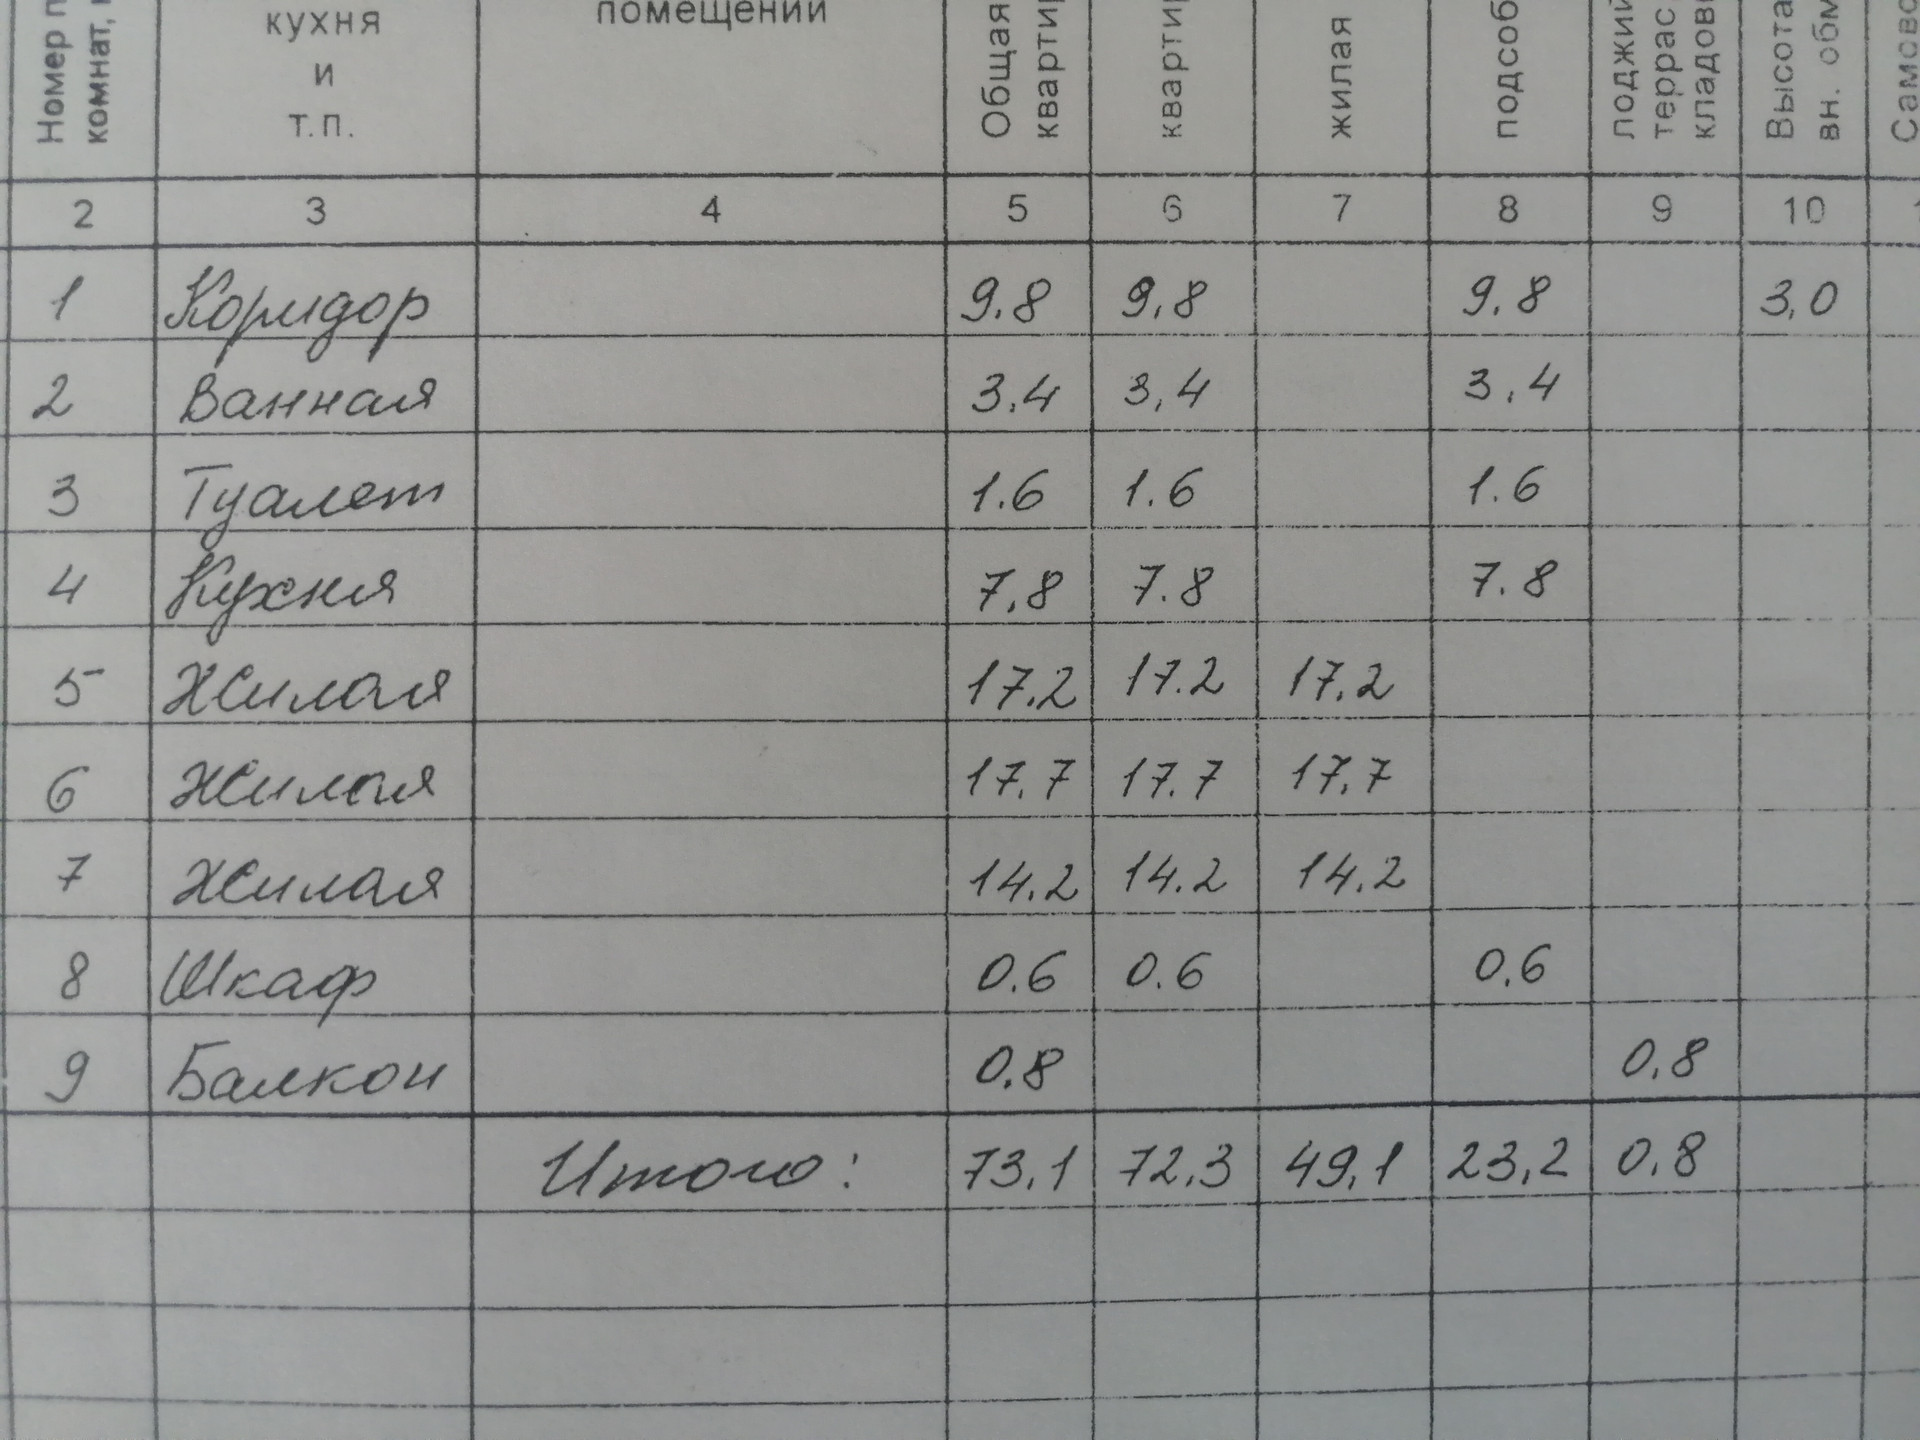 Номер
комнат,
кухня
и
т.п.
помещений
Общая
жилая
Высота
вн.
2 3 4 5 6 7 8 9 10
1 Коридор 9.8 9,8 9.8 3,0
2 Ванная 3.4 3,4 3,4
3 Туалет 1.6 1.6 1.6
4 Кухня 7,8 7.8 7.8
5 Жилая 17.2 17.2 17.2
6 Жилая 17.7 17.7 17,7
7 Жилая 14.2 14.2 14.2
8 Шкаф 0.6 0.6 0,6
9 Балкон 0.8 0,8
Итого: 73,1 72,3 49,1 23,2 0,8